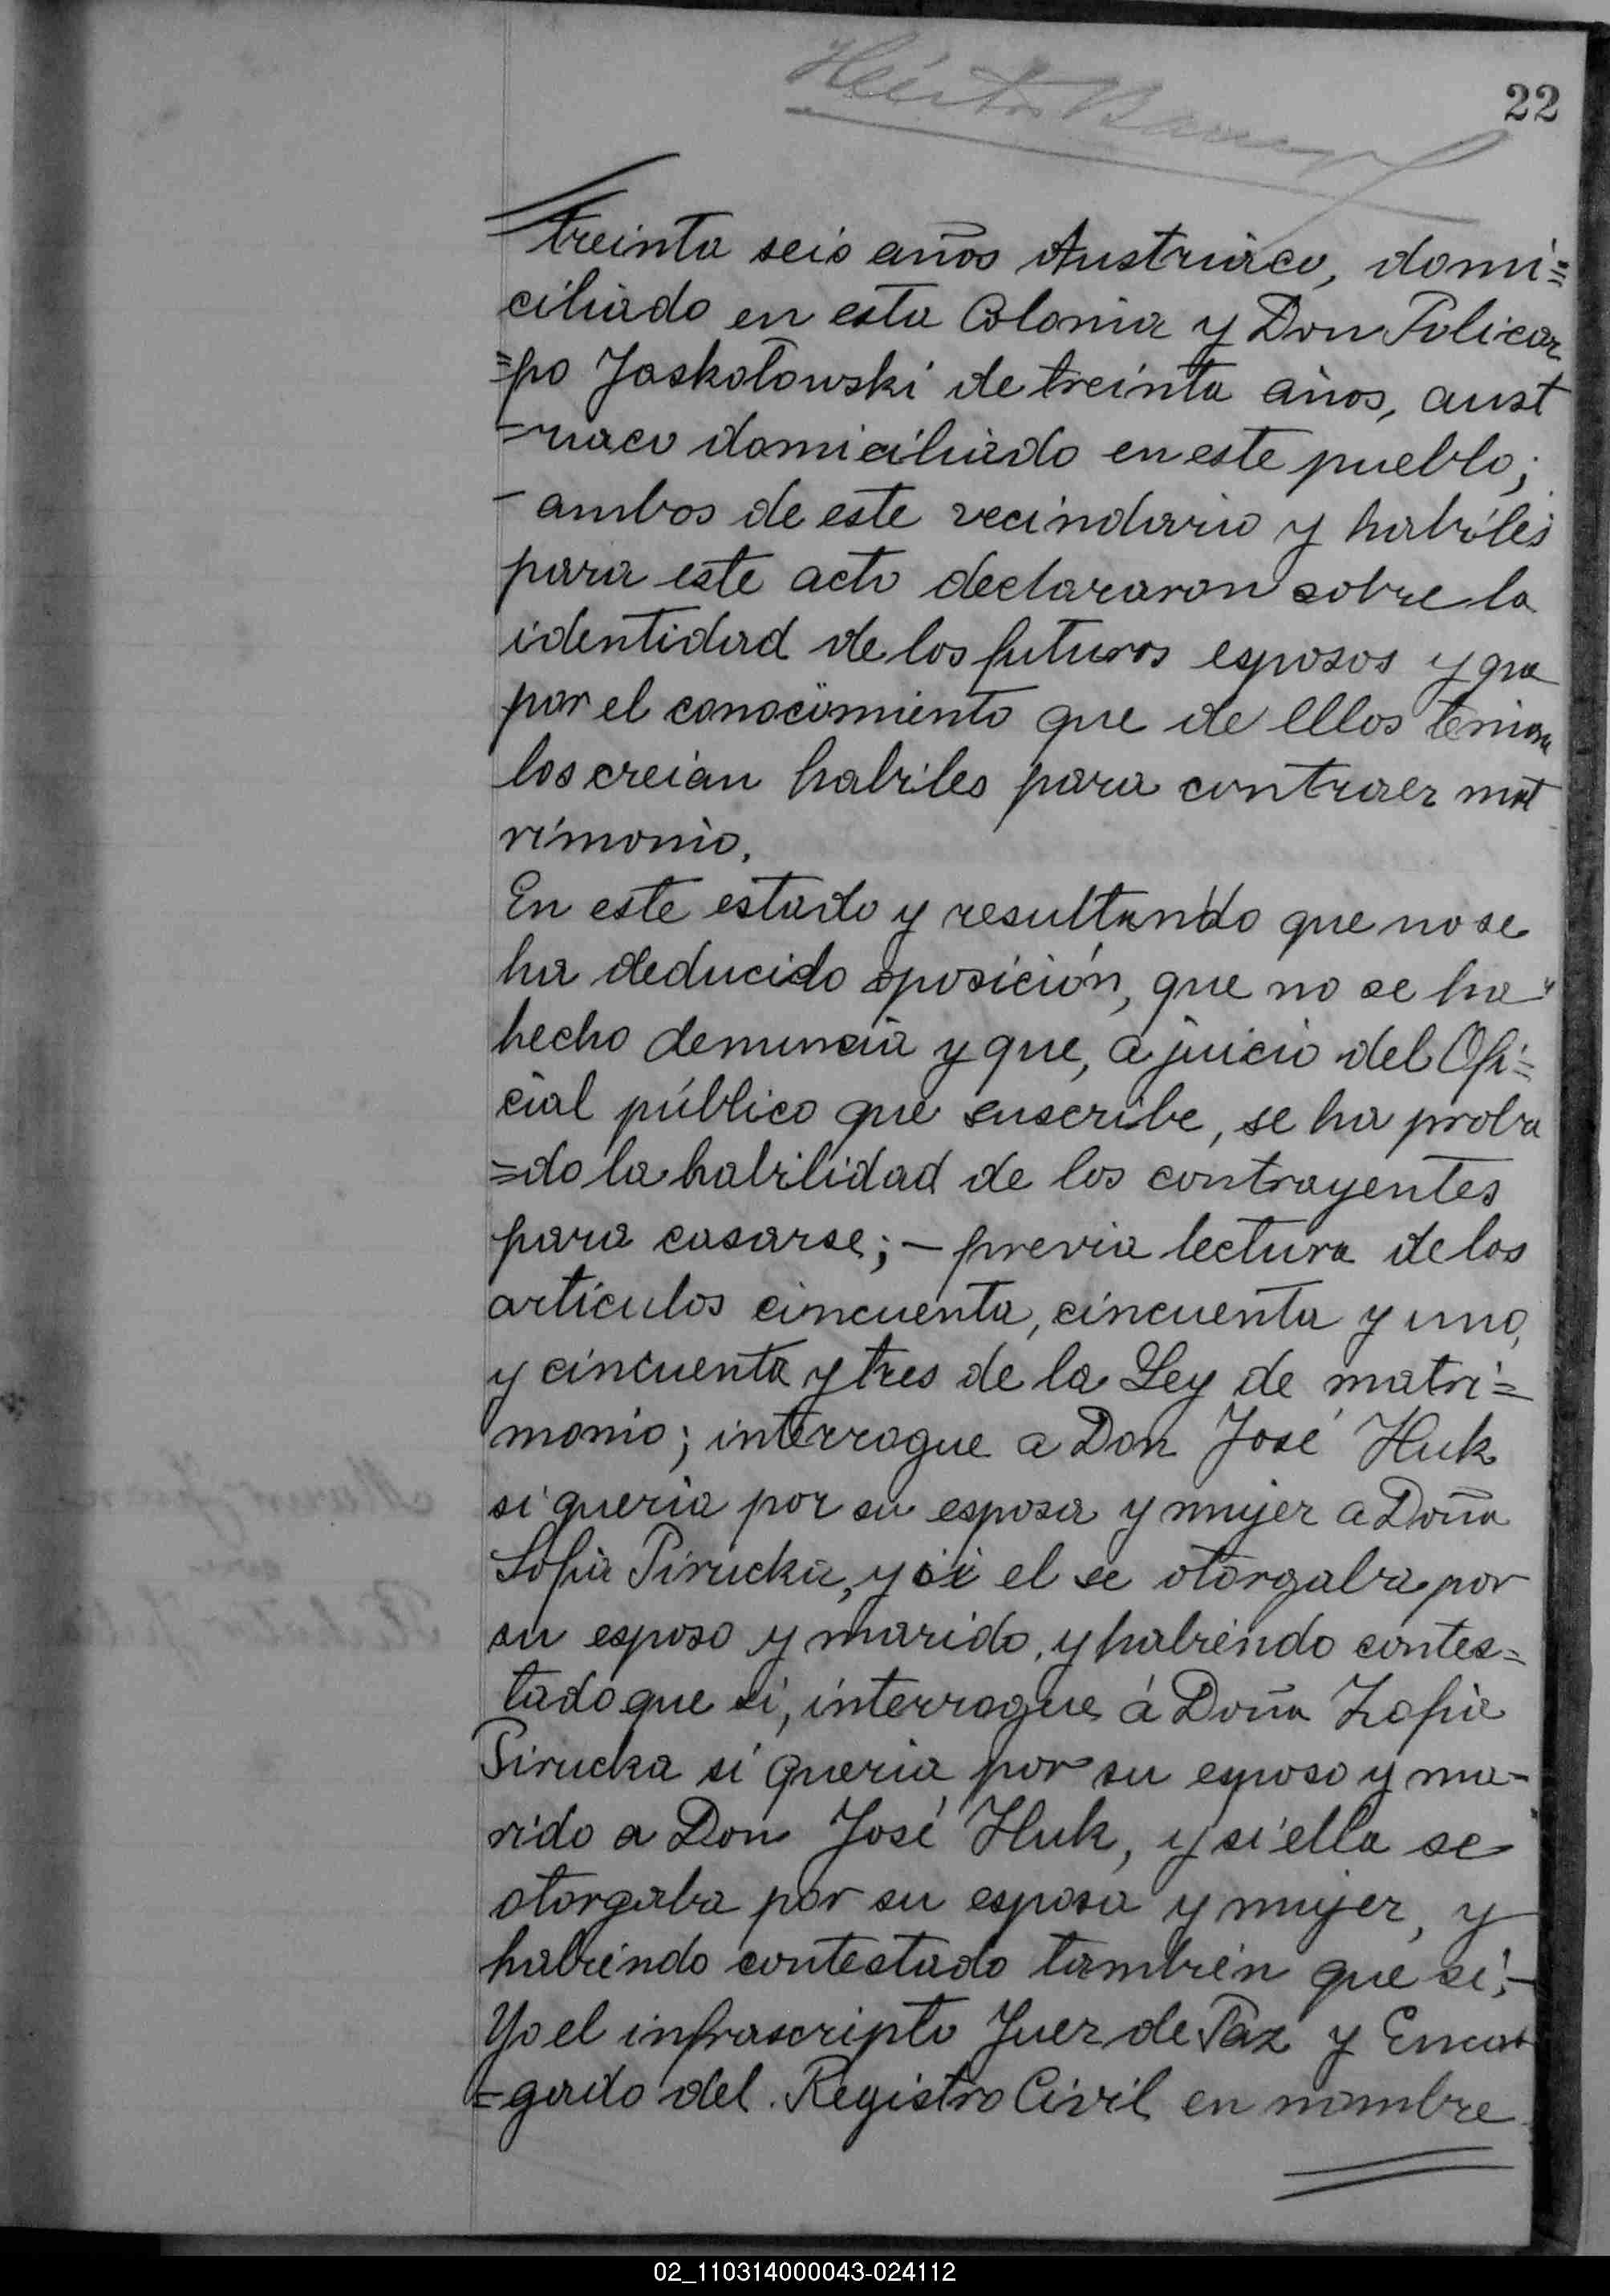 22
treinta seis años Austriaco, domi=
ciliado en esta Colonia y Don Policar
=po Jaskolowski de treinta años, aust
=riaco domiciliado en este pueblo;
- ambos de este vecindario y habiles
para este acto declararon sobre la
identidad de los futuros esposos y que
por el conocimiento que de ellos tenian
los creian habiles para contraer mat
rimonio.
En este estado y resultando que no se
ha deducido oposición, que no se ha
hecho denuncia y que, a juicio del Ofi=
cial público que suscribe, se ha proba
=do la habilidad de los contrayentes
para casarse; - previa lectura de los
artículos cincuenta, cincuenta y uno,
y cincuenta y tres de la Ley de matri=
monio; interrogue a Don José Huk
si queria por su esposa y mujer a Doña
Sofia Pirucka, y si el se otorgaba por
su esposo y marido, y habiendo contes=
tado que si, interrogue á Doña Zofia
Pirucka si queria por su esposo y ma-
rido a Don José Huk, y si ella se
otorgaba por su esposa y mujer, y
habiendo contestado tambien que si; -
Yo el infrascripto Juez de Paz y Encar
=gado del Registro Civil en nombre
02_110314000043-024112